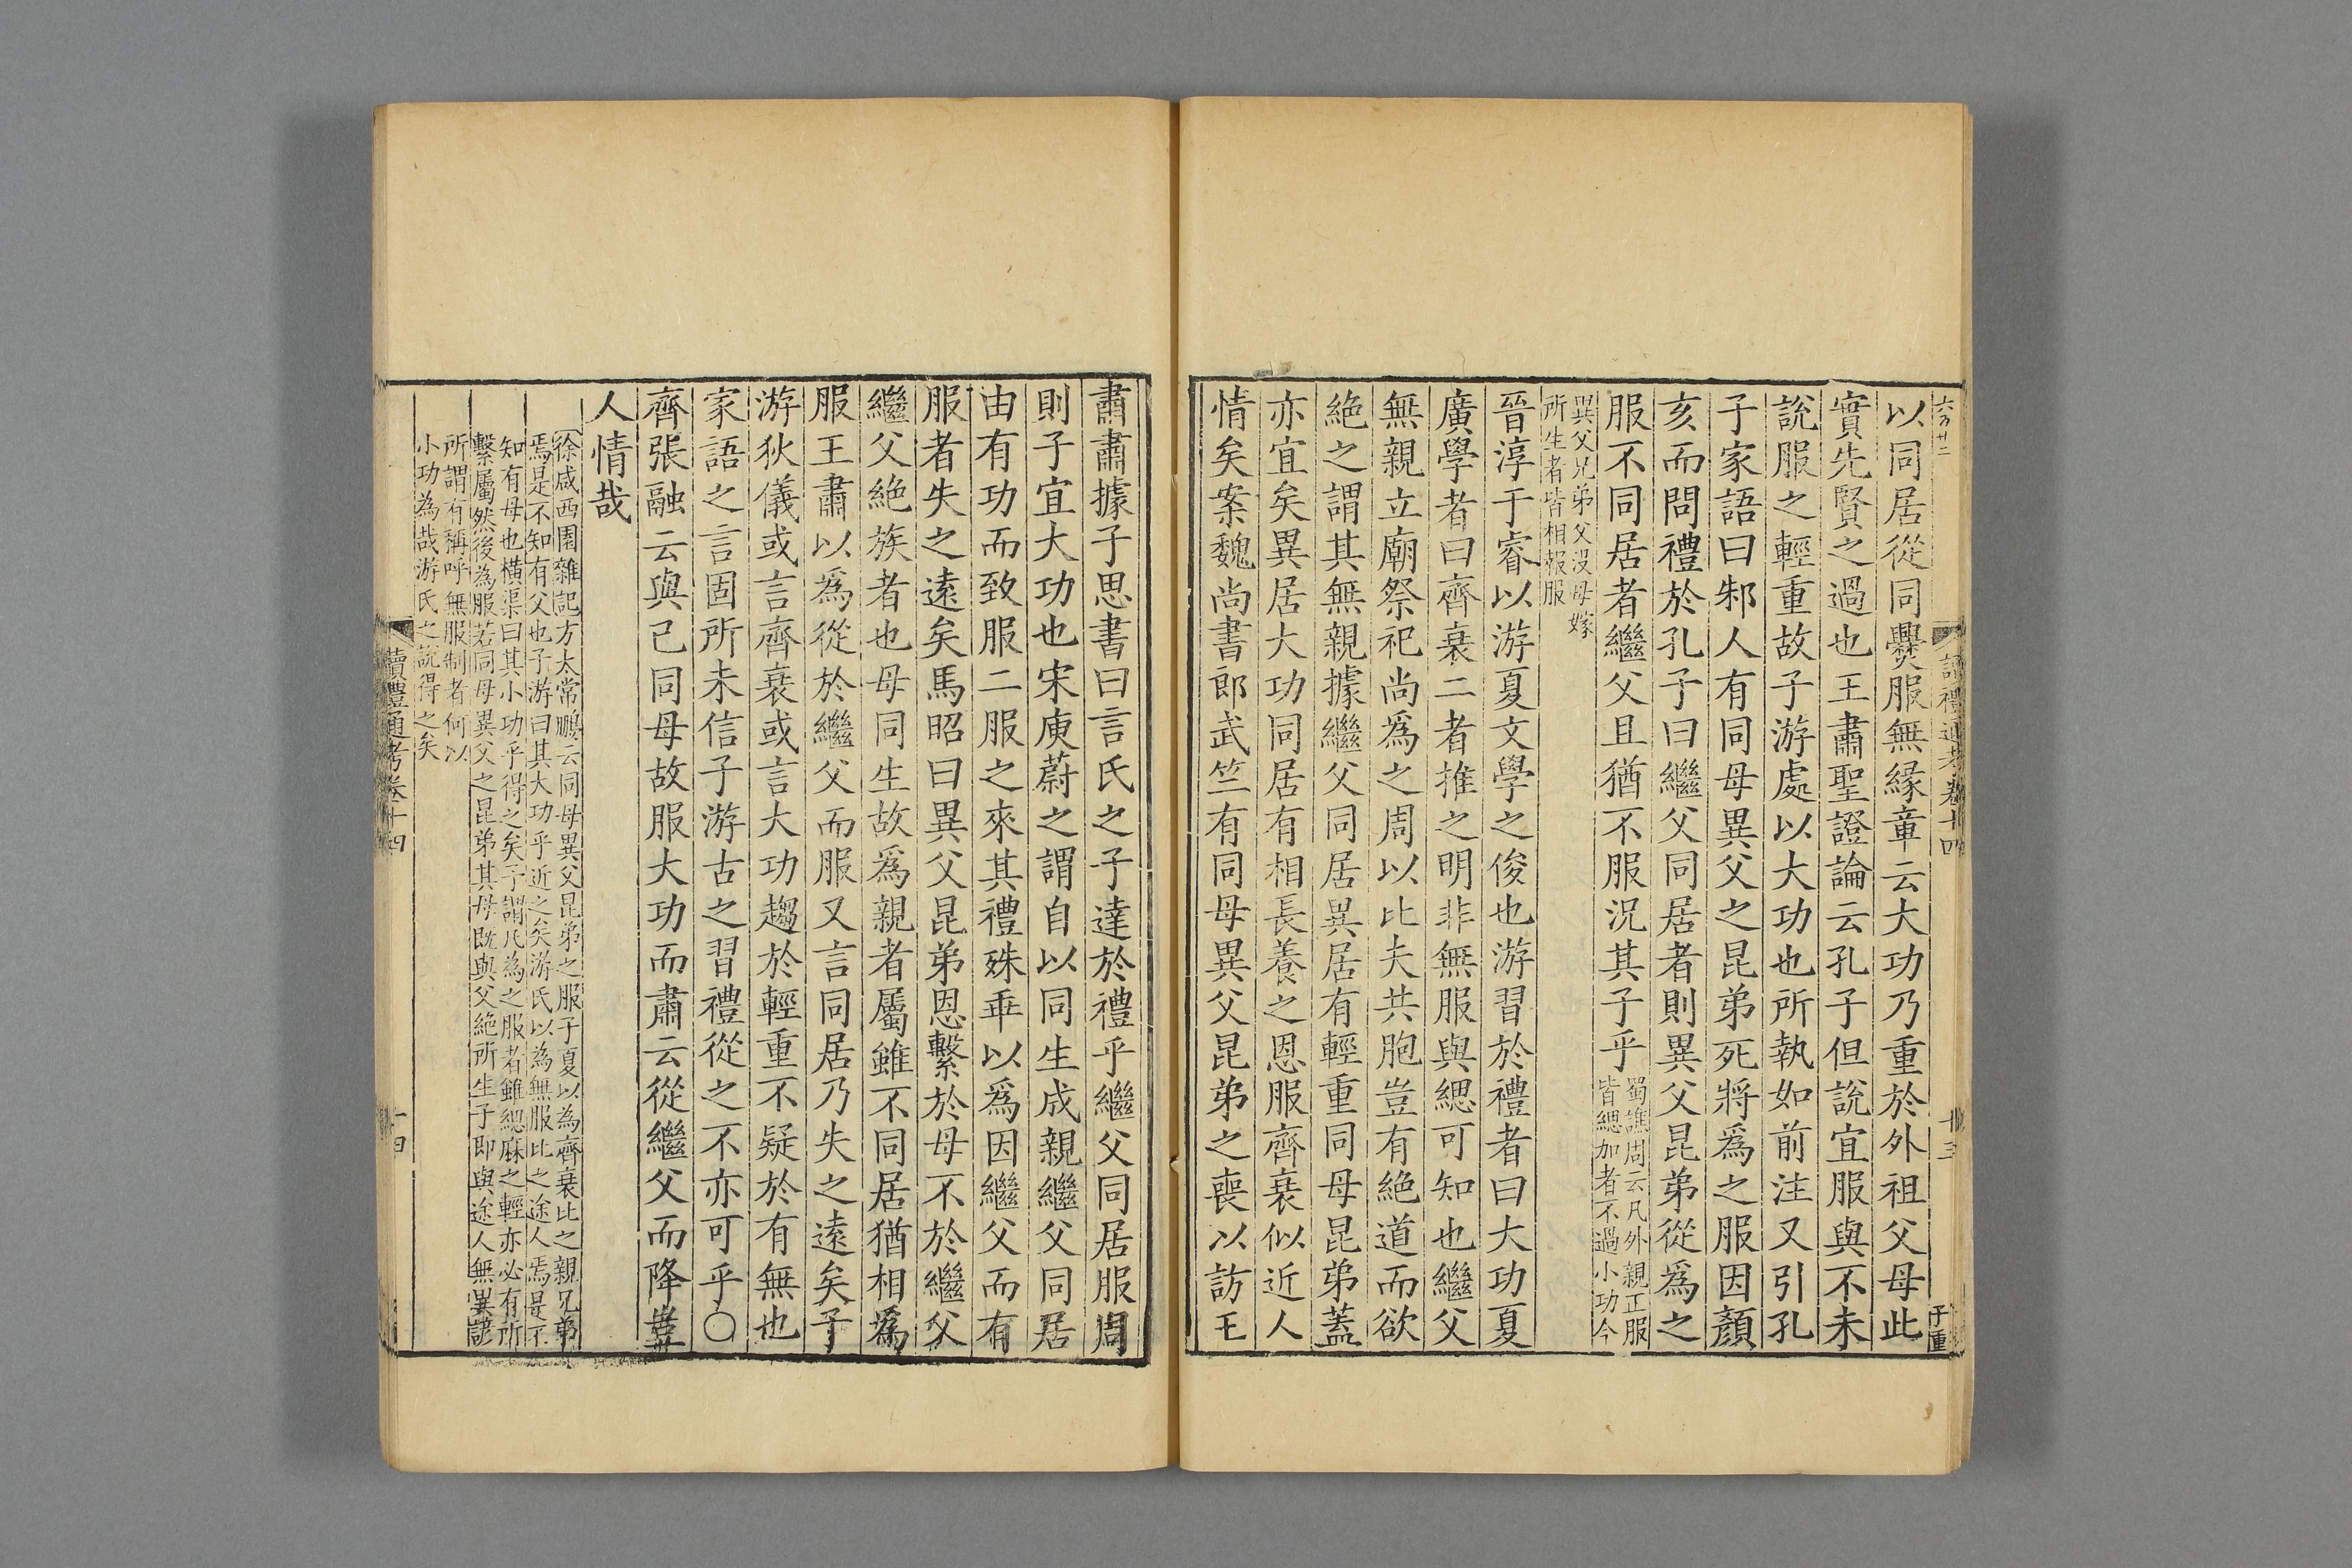 六百廿二
讀禮通考卷十四
十三
子重
以同居從同爨服無緣章云大功乃重於外祖父母此
實先賢之過也王肅聖證論云孔子但說宜服與不未
說服之輕重故子游處以大功也所執如前注又引孔
子家語曰邾人有同母異父之昆弟死將爲之服因顏
亥而問禮於孔子曰繼父同居者則異父昆弟從爲之
服不同居者繼父且猶不服況其子乎
蜀譙周云凡外親正服
皆緦加者不過小功今
異父兄弟父沒母嫁
所生者皆相報服
晉淳于睿以游夏文學之俊也游習於禮者曰大功夏
廣學者曰齊衰二者推之明非無服與緦可知也繼父
無親立廟祭祀尚爲之周以比夫共胞豈有絶道而欲
絶之謂其無親據繼父同居異居有輕重同母昆弟蓋
亦宜矣異居大功同居有相長養之恩服齊衰似近人
情矣案魏尚書郎武竺有同母異父昆弟之喪以訪王
肅肅據子思書曰言氏之子達於禮乎繼父同居服周
則子宜大功也宋庾蔚之謂自以同生成親繼父同居
由有功而致服二服之來其禮殊乖以爲因繼父而有
服者失之遠矣馬昭曰異父昆弟恩繫於母不於繼父
繼父絶族者也母同生故爲親者屬雖不同居猶相爲
服王肅以爲從於繼父而服又言同居乃失之遠矣子
游狄儀或言齊衰或言大功趨於輕重不疑於有無也
家語之言固所未信子游古之習禮從之不亦可乎○
齊張融云與己同母故服大功而肅云從繼父而降豈
人情哉
〔徐咸西園雜記方太常鵬云同母異父昆弟之服子夏以為齊衰比之親兄弟
焉是不知有父也子游曰其大功乎近之矣游氏以為無服比之途人焉是不
知有母也橫渠曰其小功乎得之矣予謂凡為之服者雖緦麻之輕亦必有所
繫屬然後為服若同母異父之昆弟其母既與父絶所生子即與途人無異諺
所謂有稱呼無服制者何以
小功為哉游氏之說得之矣
讀禮通考卷十四
十四